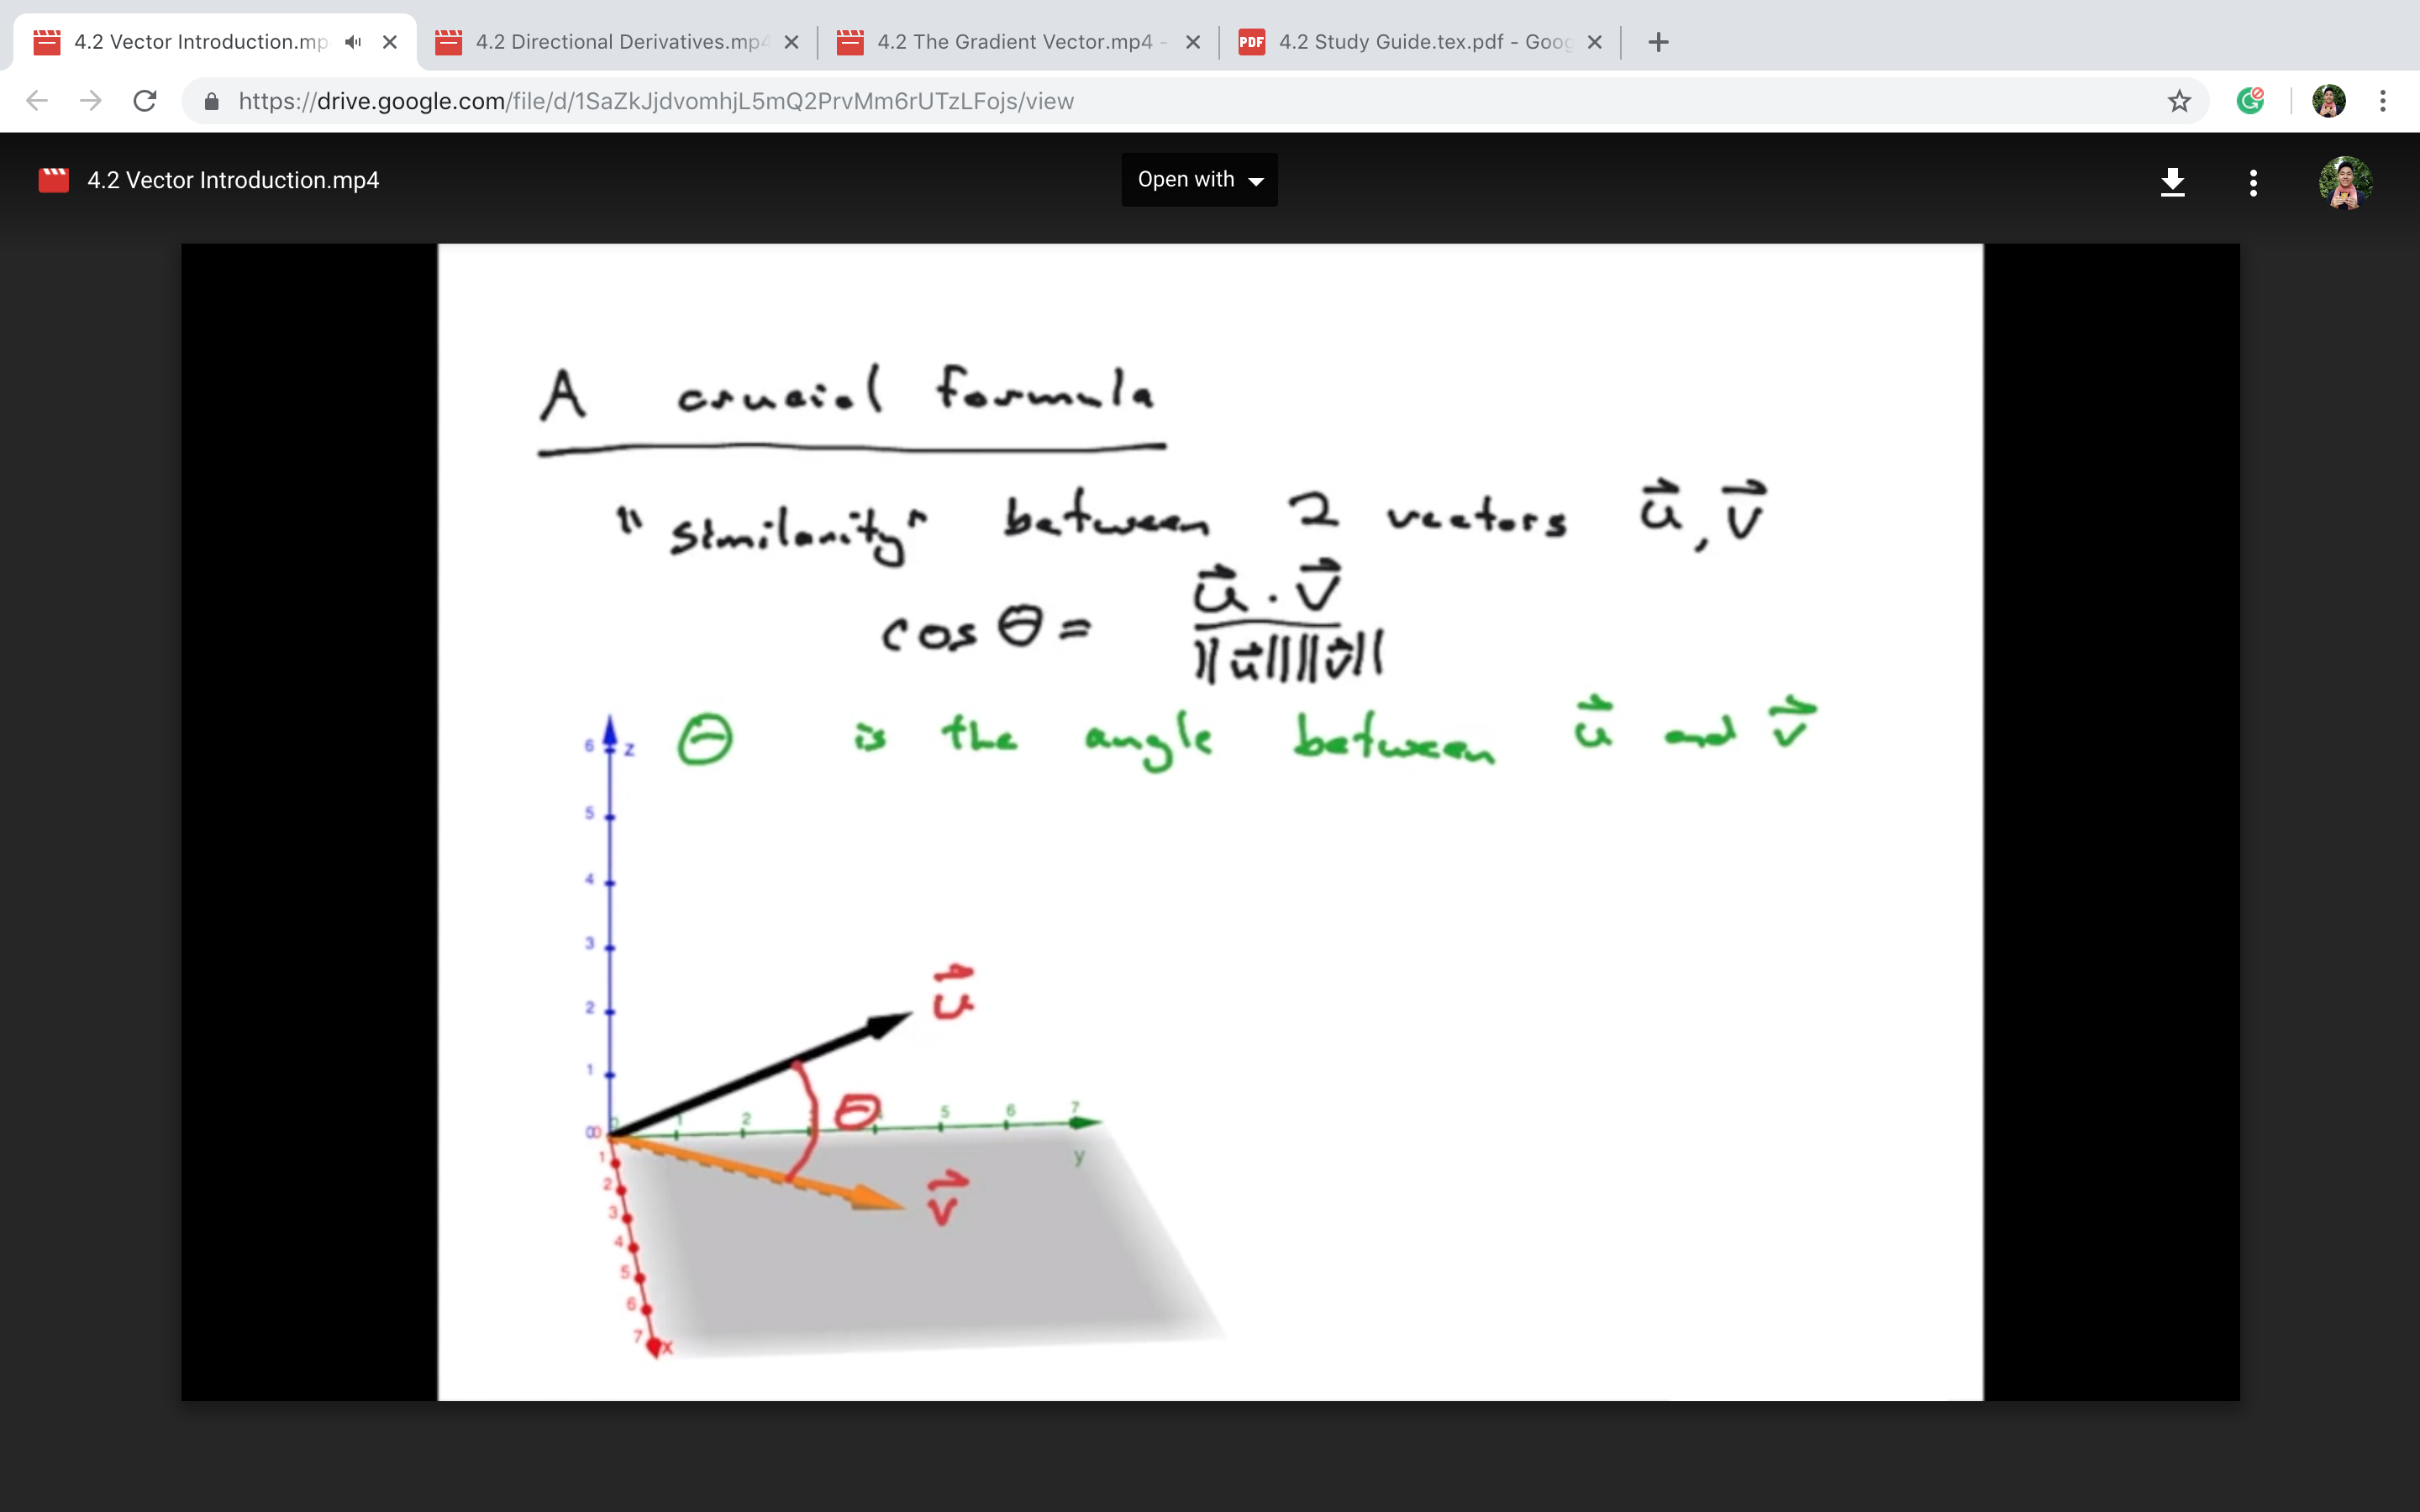 4.2 Vector Introduction.mp
4.2 Directional Derivatives.mp4
4.2 The Gradient Vector.mp4 -
PDF 4.2 Study Guide.tex.pdf - Goog
https://drive.google.com/file/d/1SaZkJjdvomhjL5mQ2PrvMm6rUTzLFojs/view
4.2 Vector Introduction.mp4
Open with
A crucial formula
"similarity" between 2 vectors u⃗, v⃗
cos θ = u⃗ · v⃗ / ||u⃗|| ||v⃗||
θ is the angle between u⃗ and v⃗
6 z
5
4
3
2
1
u⃗
0 0 0 1 2 3 4 5 6 7
θ
y
v⃗
1
2
3
4
5
6
7 x